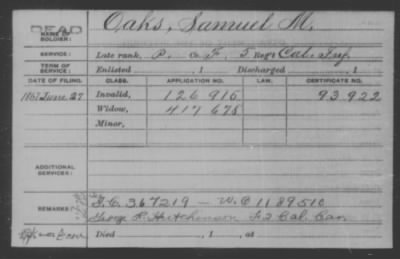 DEAD
NAME OF SOLDIER: Oaks, Samuel M.
SERVICE: Late rank, P. Co. F, 5 Reg't Cal. Inf.
TERM OF SERVICE: Enlisted , 1 Discharged , 1
DATE OF FILING. CLASS. APPLICATION NO. LAW. CERTIFICATE NO.
1867 June 27 Invalid, 126 916 93.922
Widow, 417 678
Minor,
ADDITIONAL SERVICES:
REMARKS: I.C. 367219 — W.C 1189510
George R. Hutchinson F2 Cal. Cav.
Died , 1 , at